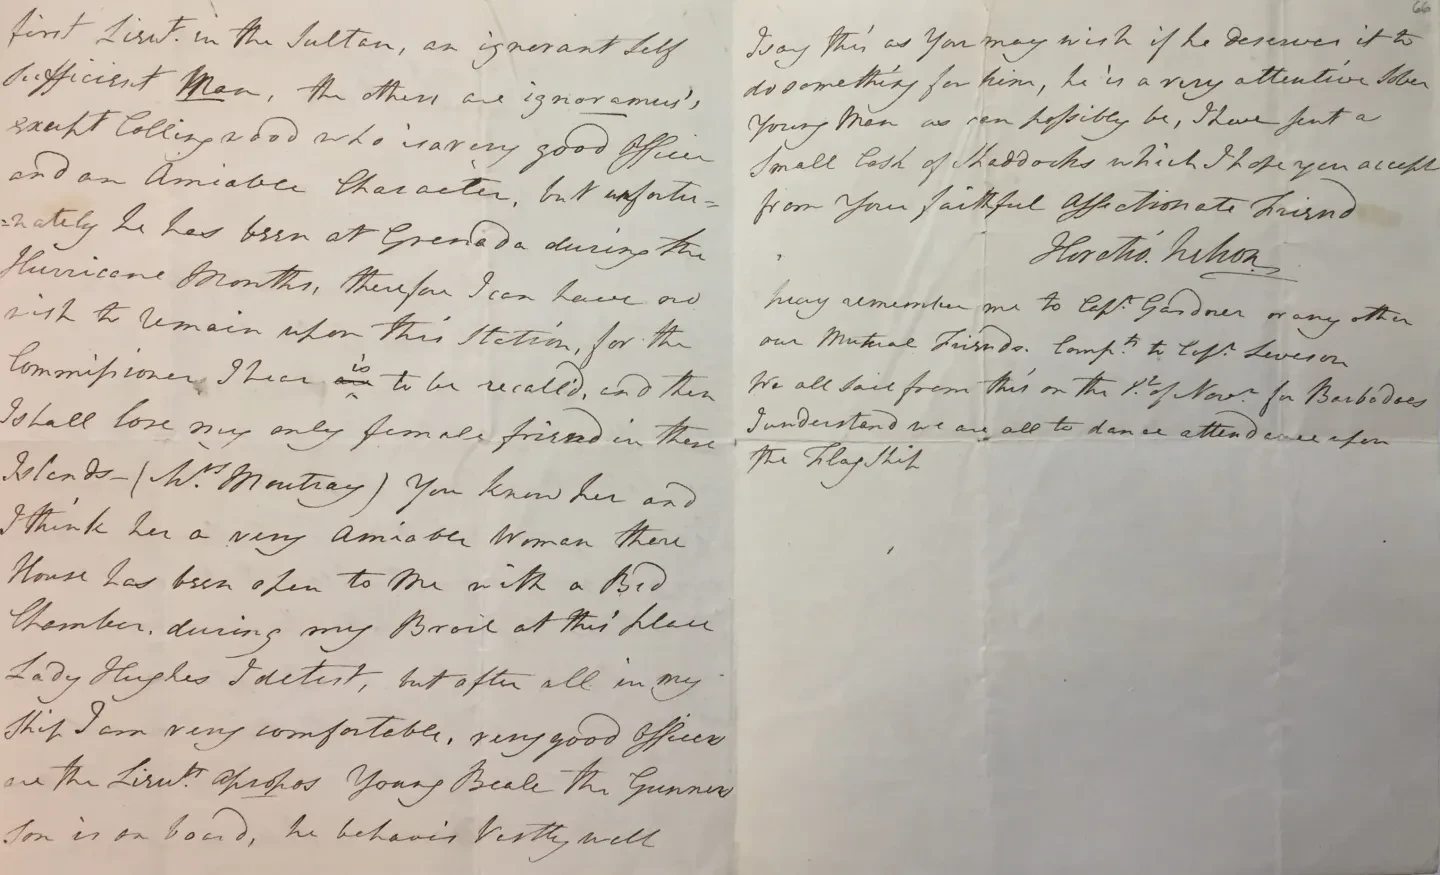 first Lieut. in the Sultan, an ignorant Self
sufficient Man, the others are ignoramus's,
except Collingwood who is a very good Officer
and an Amiable Character, but unfortu=
=nately he has been at Grenada during the
Hurricane Months, therefore I can have no
wish to remain upon this Station, for the
Commissioner I hear is to be recalld, and then
I shall lose my only female friend in these
Islands - (Mrs. Moutray) You know her and
I think her a very Amiable Woman there
House has been open to Me with a Bed
Chamber, during my Broil at this place
Lady Hughes I detest, but after all in my
Ship I am very comfortable, very good Officers
are the Lieuts. apropos Young Beale the Gunners
Son is on board, he behaves Vastly well
66
I say this as You may wish if he deserves it to
do something for him, he is a very attentive Sober
Young Man as can possibly be, I have sent a
Small Cask of Shaddocks which I hope you accept
from Your faithful Affectionate Friend
Horatio. Nelson.
Pray remember me to Capt. Gardner or any other
our Mutual Friends. Compts. to Capt. Leveson
We all sail from this on the 1st. of Novr. for Barbadoes
I understand we are all to dance attendance upon
the Flag Ship